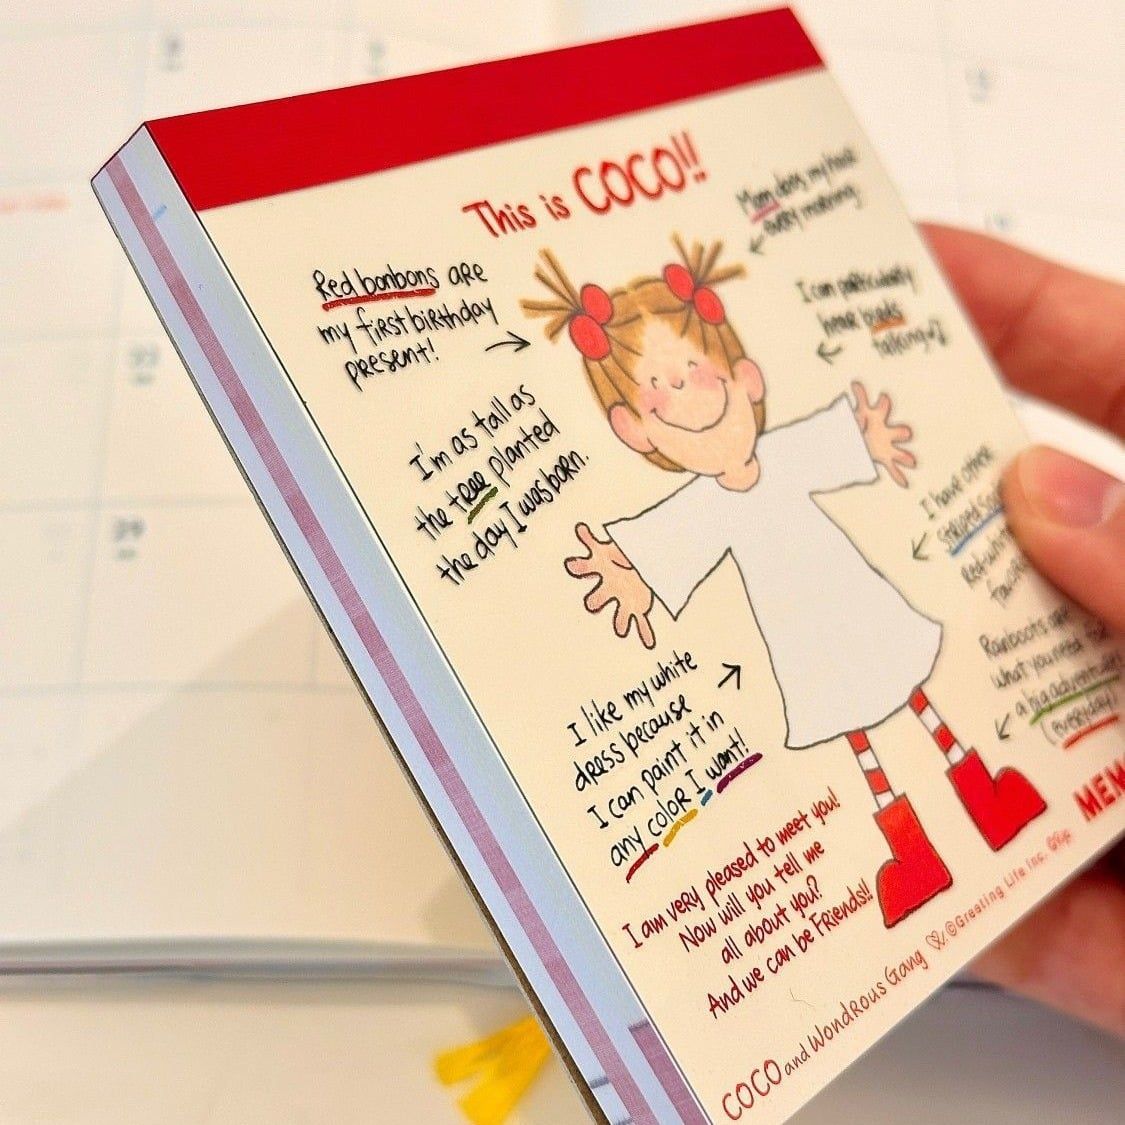 This is COCO!!
Red bonbons are
my first birthday
present!
I'm as tall as
the tree planted
the day I was born.
I like my white
dress because
I can paint it in
any color I want!
Mom does my hair
every morning
I can particularly
hear birds
talking
I have other
striped
Red-white
Rainboots are
what you need
a big adventure
(everyday)!
I am very pleased to meet you!
Now will you tell me
all about you?
And we can be Friends!!
COCO and Wondrous Gang
©Greeting Life Inc.
MEM